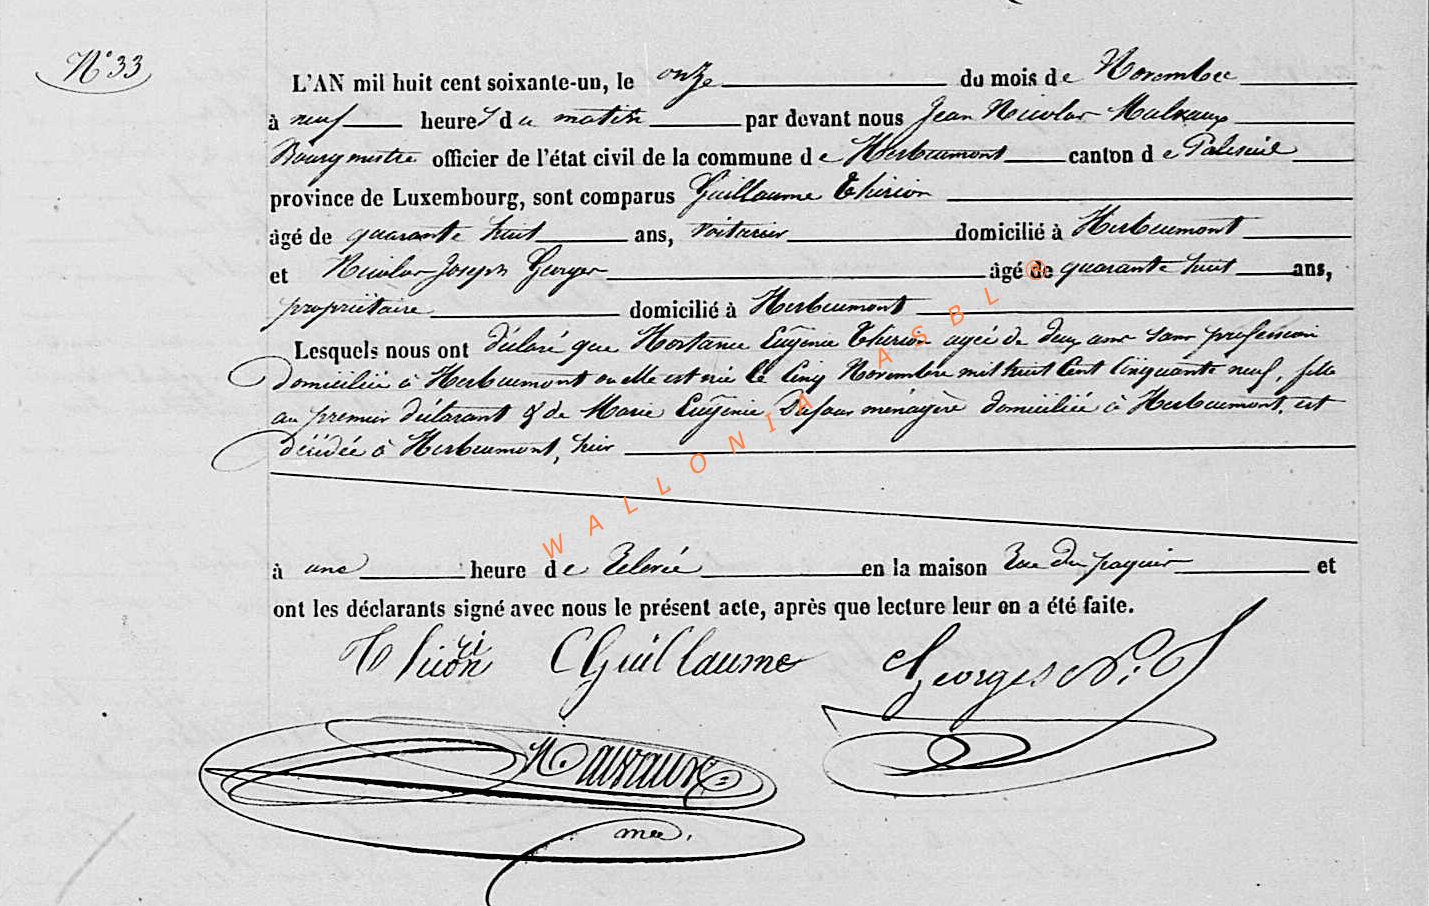 N° 33
L'AN mil huit cent soixante-un, le onze du mois de Novembre
à neuf heures du matin par devant nous Jean Nicolas
Bourgmestre officier de l'état civil de la commune de Herbeumont canton de Paliseul
province de Luxembourg, sont comparus Guillaume Thirion
âgé de quarante huit ans, voiturier domicilié à Herbeumont
et Nicolas Joseph Georges âgé de quarante huit ans,
propriétaire domicilié à Herbeumont
Lesquels nous ont déclaré que Hortance Eugénie Thirion agée de deux ans sans profession
domiciliée à Herbeumont ou elle est née le Cinq Novembre mil huit Cent Cinquante neuf, fille
au premier déclarant & de Marie Eugénie Dufour ménagère domiciliée à Herbeumont, est
décédée à Herbeumont, hier
à une heure de Relevée en la maison Rue du paquis et
ont les déclarants signé avec nous le présent acte, après que lecture leur en a été faite.
Thirion Guillaume Georges N. J
WALLONIA ASBL ©